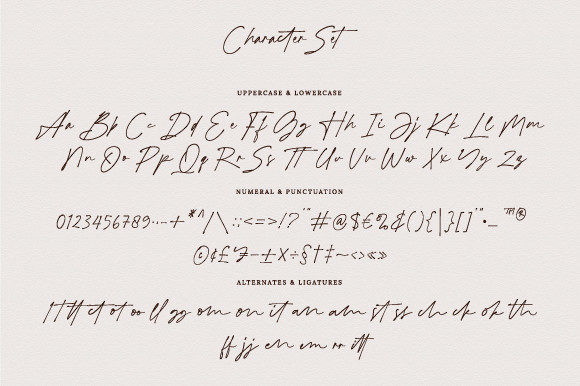 Character Set
UPPERCASE & LOWERCASE
Aa Bb Cc Dd Ee Ff Gg Hh Ii Jj Kk Ll Mm
Nn Oo Pp Qq Rr Ss Tt Uu Vv Ww Xx Yy Zz
NUMERAL & PUNCTUATION
0123456789··-+*^/\:;<=>!?'"#@$€%&(){|}[]'"•_™®
©¢£¥-±×÷§†‡~‹›«»
ALTERNATES & LIGATURES
H tt ct ot oo ll gg om on it an am st ss ch ck ok th
ff jj en em rr itt